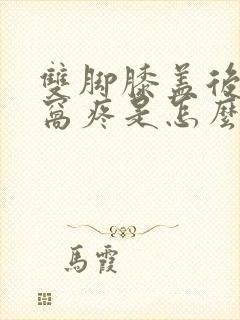 雙脚膝盖後
窩疼是怎麼
馬霞